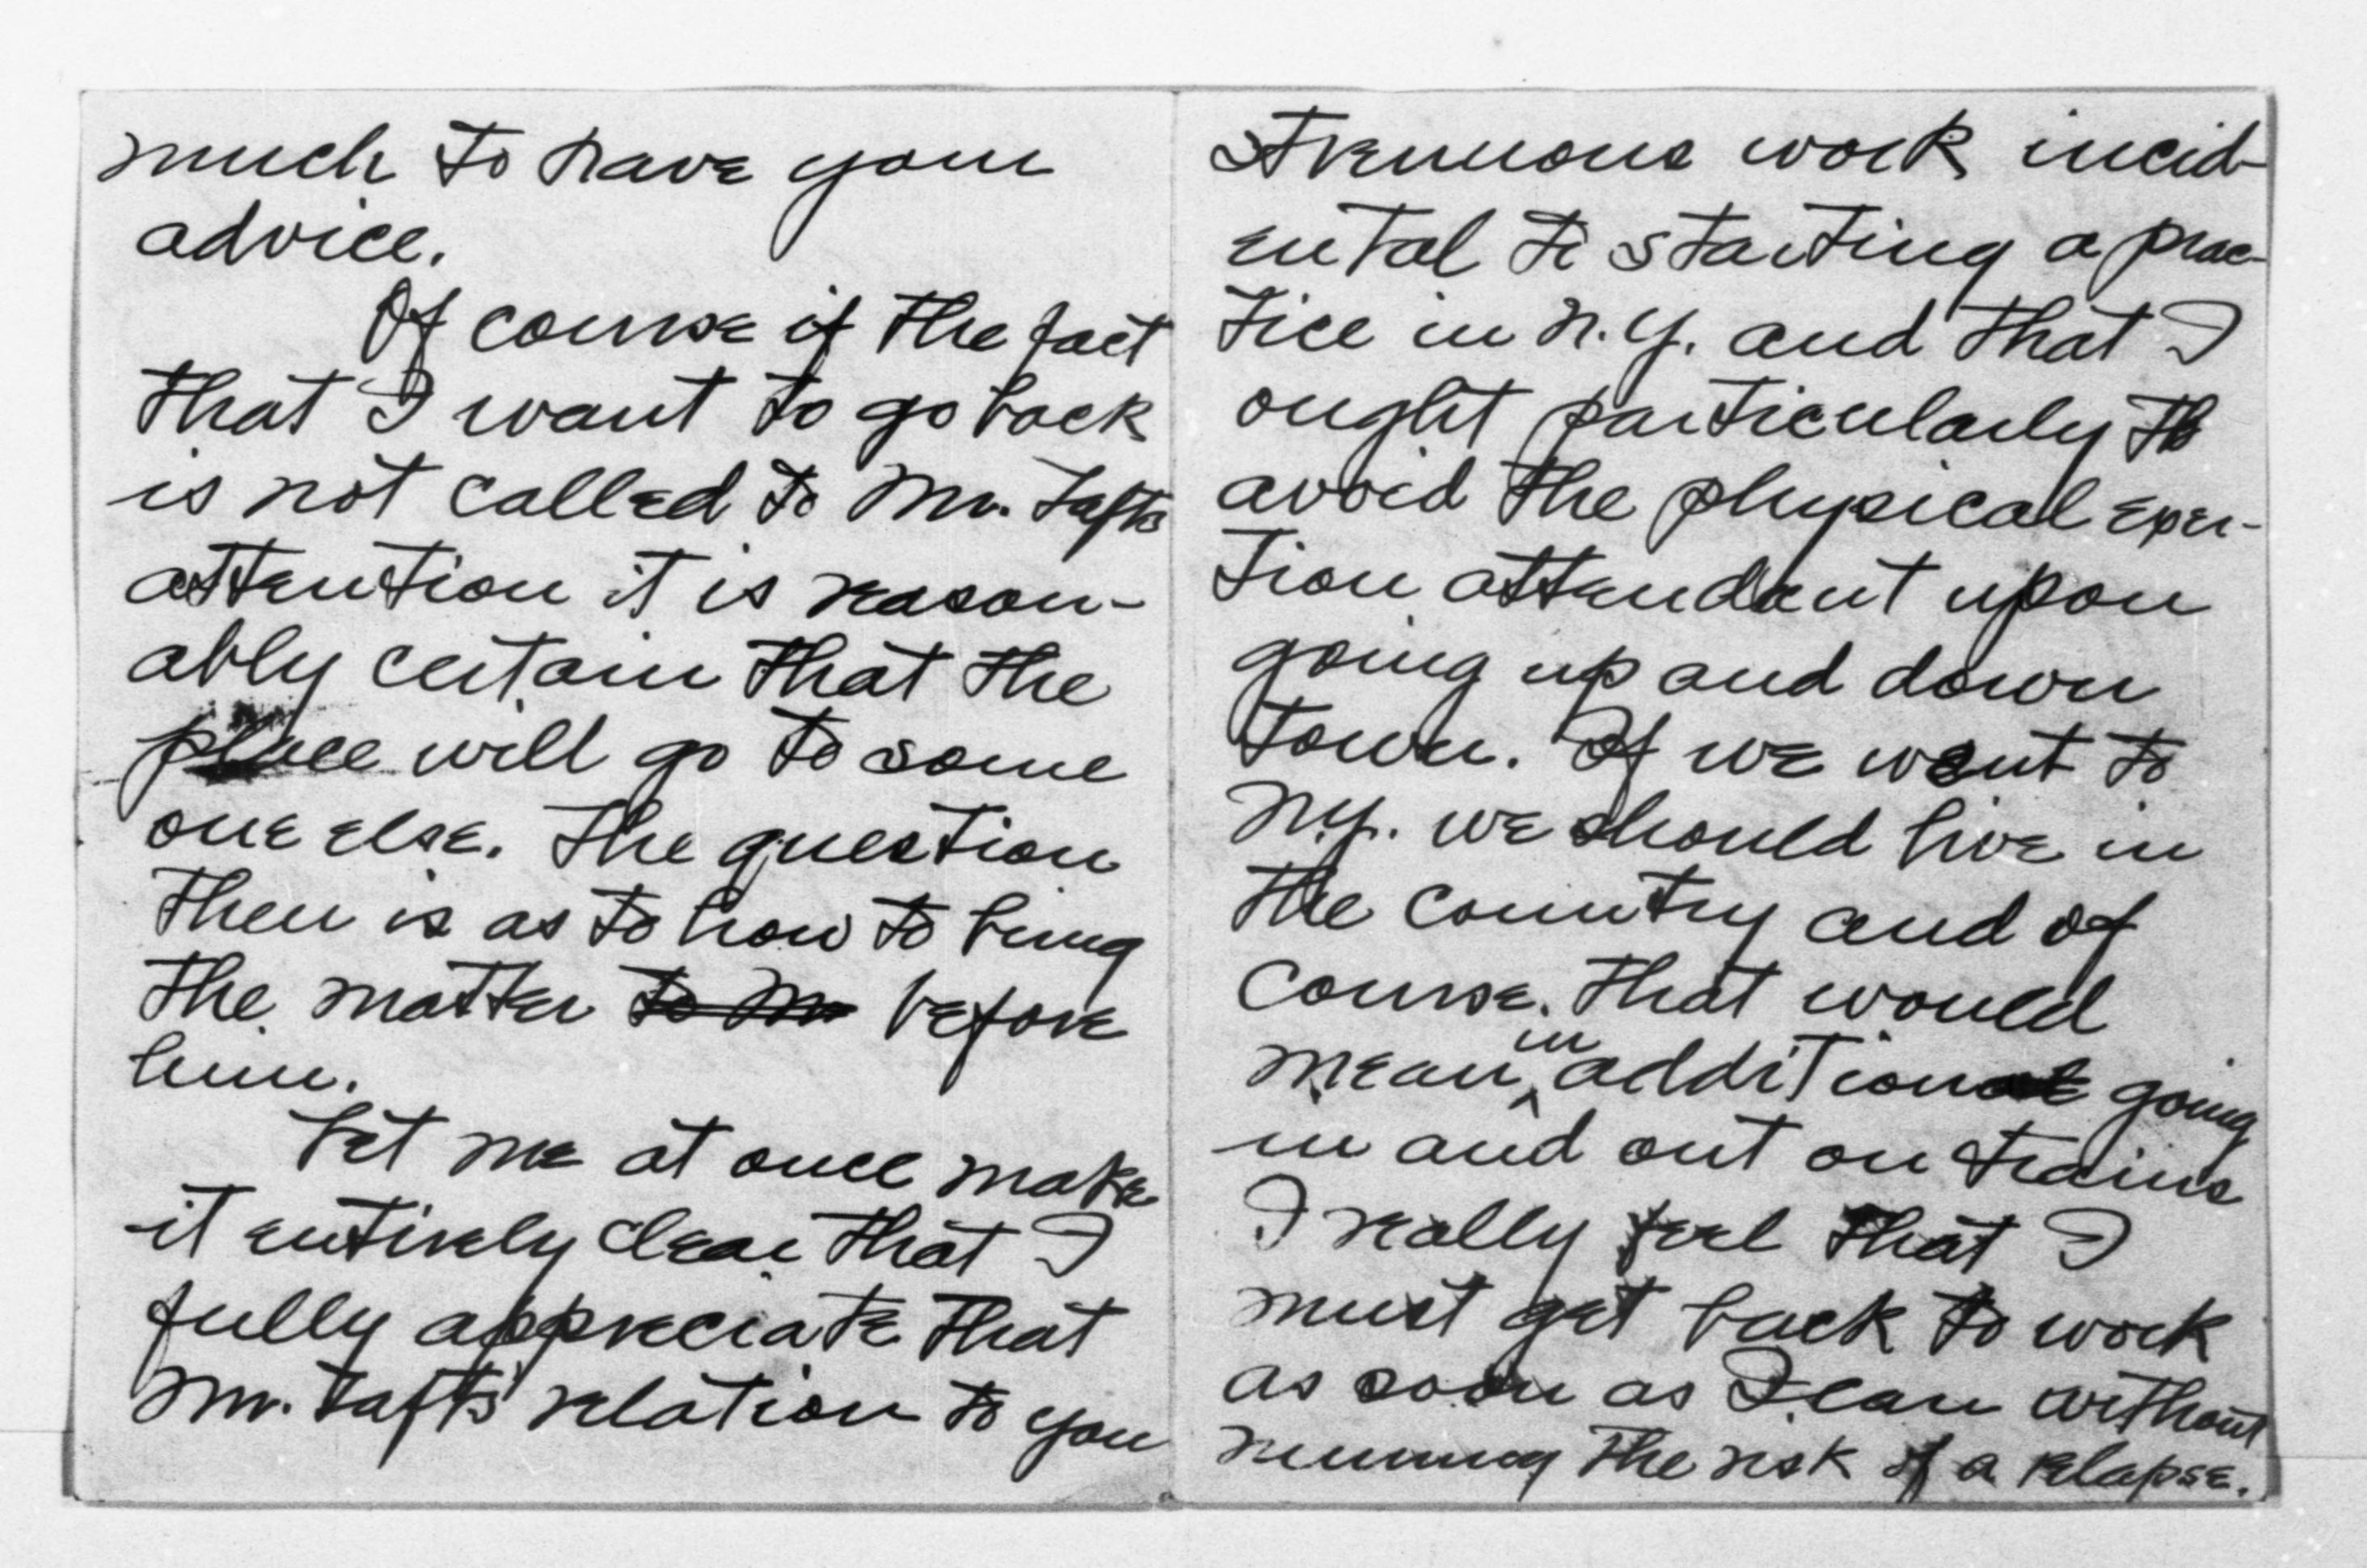 much to have your
advice.
Of course if the fact
that I want to go back
is not called to Mr. Tafts
attention it is reason-
ably certain that the
place will go to some
one else. The question
then is as to how to bring
the matter to Mr before
him.
Let me at once make
it entirely clear that I
fully appreciate that
Mr. Taft's relation to you
strenuous work incid-
ental to starting a prac-
tice in N.Y. and that I
ought particularly to
avoid the physical exer-
tion attendant upon
going up and down
town. If we went to
N.Y. we should live in
the country and of
course that would
mean in addition going
in and out on trains
I really feel that I
must get back to work
as soon as I can without
running the risk of a relapse.